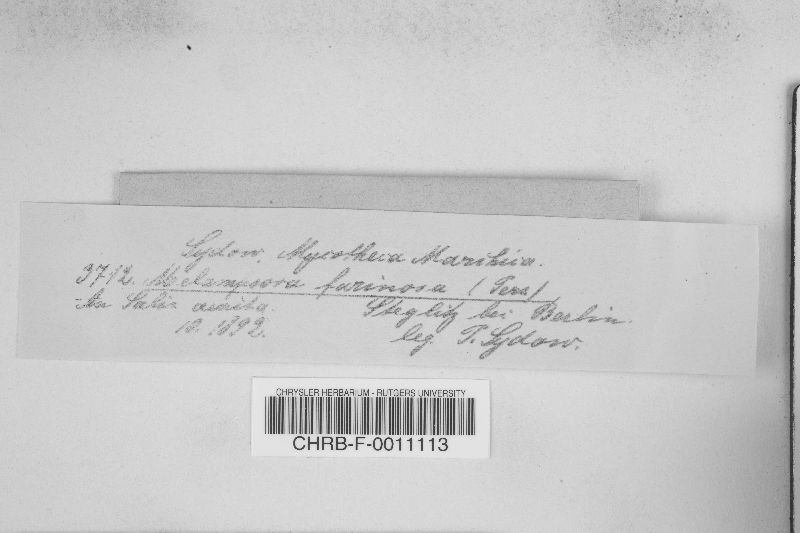 Sydow. Mycotheca Marchica.
3712. Melampsora farinosa (Pers)
An Salix aurita. Steglitz bei Berlin.
10. 1892. leg. P. Sydow.
CHRYSLER HERBARIUM - RUTGERS UNIVERSITY
CHRB-F-0011113